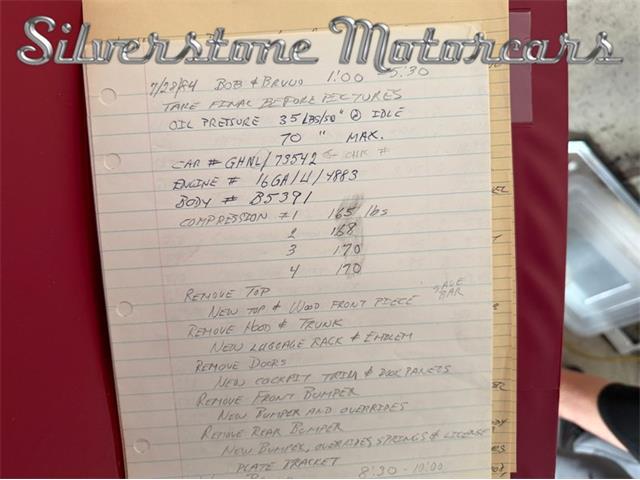 Silverstone Motorcars
7/28/84 BOB & BRUCE 1:00 - 5:30
TAKE FINAL BEFORE PICTURES
OIL PRESSURE 35 LBS/SQ" @ IDLE
70 " MAX.
CAR # GHNL/73542 ← CHK #
ENGINE # 16GA/U/4883
BODY # B5391
COMPRESSION #1 165 lbs
2 168
3 170
4 170
REMOVE TOP
NEW TOP & WOOD FRONT PIECE SAVE BAR
REMOVE HOOD & TRUNK
NEW LUGGAGE RACK & EMBLEM
REMOVE DOORS
NEW COCKPIT TRIM & DOOR PANELS
REMOVE FRONT BUMPER
NEW BUMPER AND OVERRIDES
REMOVE REAR BUMPER
NEW BUMPER, OVERRIDES SPRINGS & LICENSE
PLATE BRACKET
8:30 - 10:00